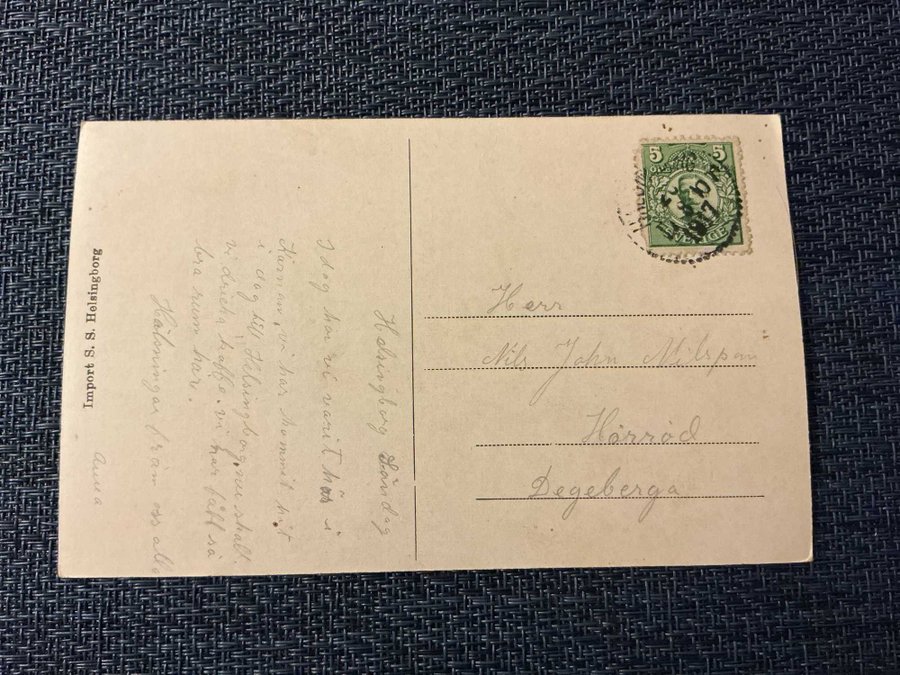 Helsingborg Lördag
I dag ha vi varit hos i
vi har kommit hit
i dag till Helsingborg, nu skall
vi dricka kaffe. vi har fått så
bra rum här.
Hälsningar från oss alla
Anna
Import S. S. Helsingborg
5 5
SVERIGE
Herr
Nils John Nilsson
Hörröd
Degeberga